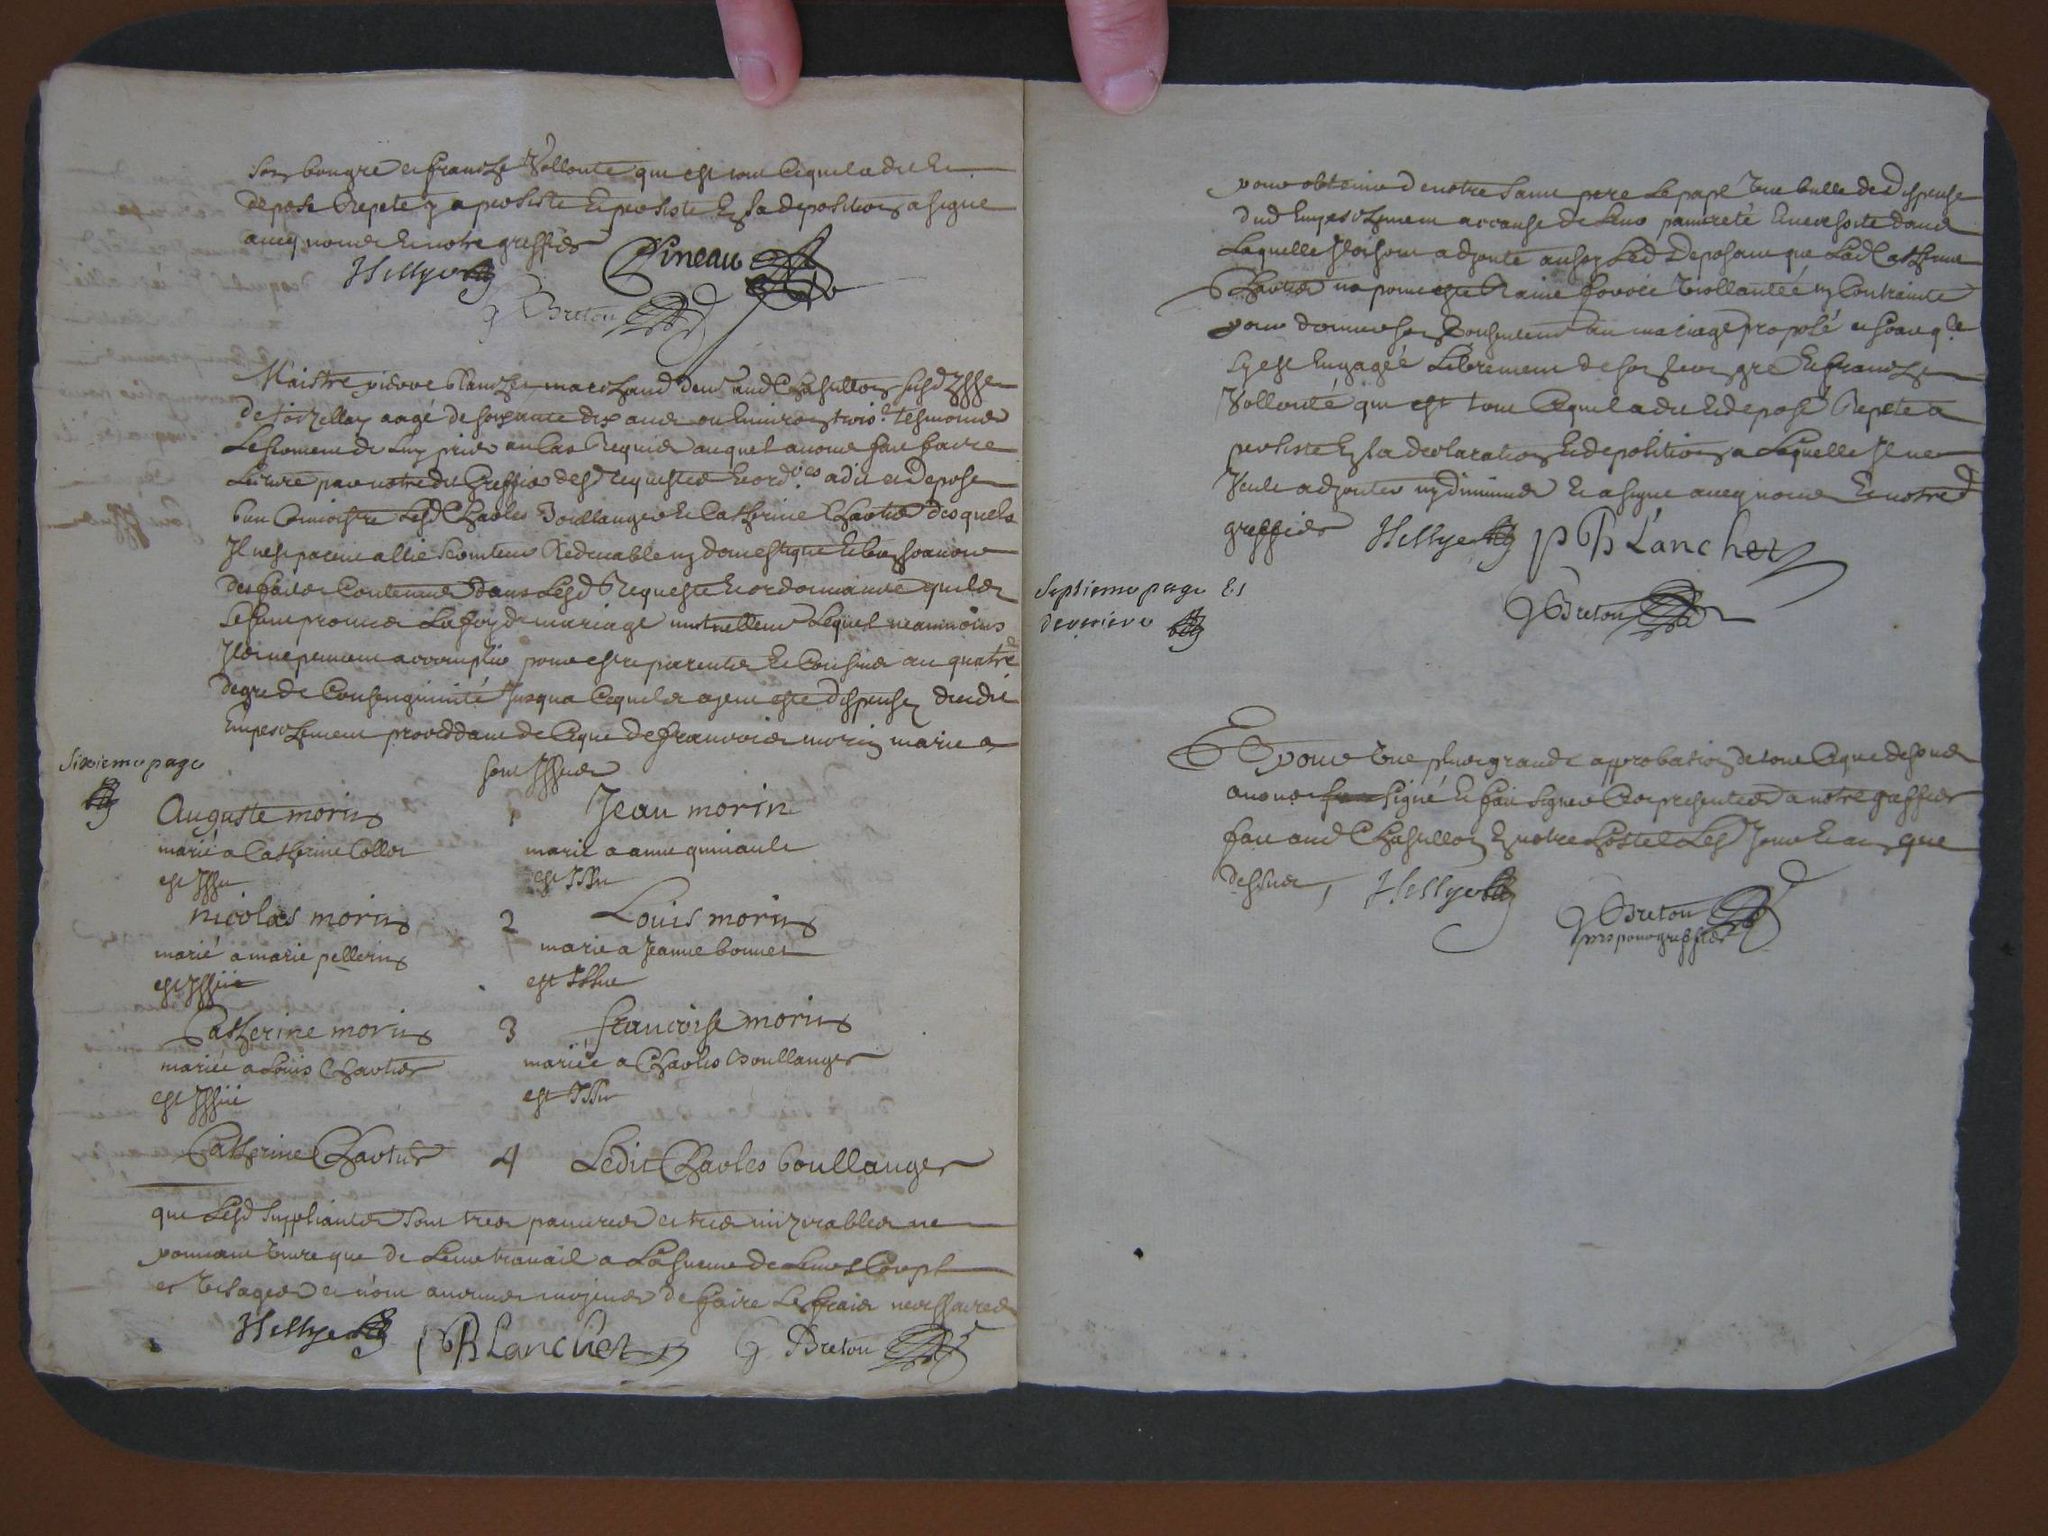 son bon gré et franche Vollonté qui est tout Ce quil a dit Et
deposé Repeté y a persisté Et persiste En sa deposition a signé
avecq nous Et notre greffier
Hillyer Pineau
Breton
Maistre pierre blanchet marchand deud aud Chastillon
aagé de soixante dix ans ou Environ trois.e tesmoin
Le serment de Luy pris au Cas Requis auquel avons fait faire
Lecture par notre dit Greffier desd requeste Et ord.ces a dit et Deposé
bien Connoistre Lesd Charles Boullanger Et Catherine Chartier desquels
Il n'est parent allié serviteur Redevable ny domestique Et bien scavoir
des faits Contenus dans Lesd Requeste Et ordonnance quils
se sont promis La foy de mariage mutuellem Lequel neanmoins
Ils ne peuvent accomplir pour estre parents Et Cousins au quatre
degré de Consenguinité Jusqua Ce quils ayent esté dispensez dudit
Empeschement proceddant de Ce que de francois morin marié a
Sixieme page
sont Issus
Auguste morin 1 Jean morin
marié a Catherine Collet marié a anne quinault
est Issu est Issu
nicolas morin 2 Louis morin
marié a marie pellerin marié a Jeanne bonnet
est Issüe est Issue
Catherine morin 3 francoise morin
mariée a Louis Chartier mariée a Charles Boullanger
est Issüe est Issu
Catherine Chartier 4 Ledit Charles boullanger
que Lesd suppliants sont tres pauvres et tres mizerables ne
pouvant vivre que de Leur travail a La sueur de Leurs Corps
et visages et n'ont aucuns moyens de faire Les frais necessaires
Hillyer P Blanchet Breton
pour obtenir de notre saint pere Le pape Une bulle de dispense
dud Empeschement a cause de Leur pauvreté
Laquelle a adjouté aussy Led Deposant que Lad Catherine
Chartier na point esté Ravie forcée Viollantée ny Contrainte
pour donner son Consentem au mariage proposé et scait q.le
sy est Engagée Librement de son bon gré Et franche
Vollonté qui est tout Ce quil a dit Et deposé Repeté a
persisté En sa declaration Et deposition a Laquelle Il ne
Veult adjouter ny diminuer Et a signé avecq nous Et notred
greffier Hillyer P Blanchet
Septieme page Et
derniere
Breton
Et pour Une plus grande approbation de tout Ce que dessus
avons signé Et fait signer Ces presentes a notre greffier
fait aud Chastillon En notre hostel Lesd Jour Et an que
dessus, Hillyer
Breton
pris pour greffier